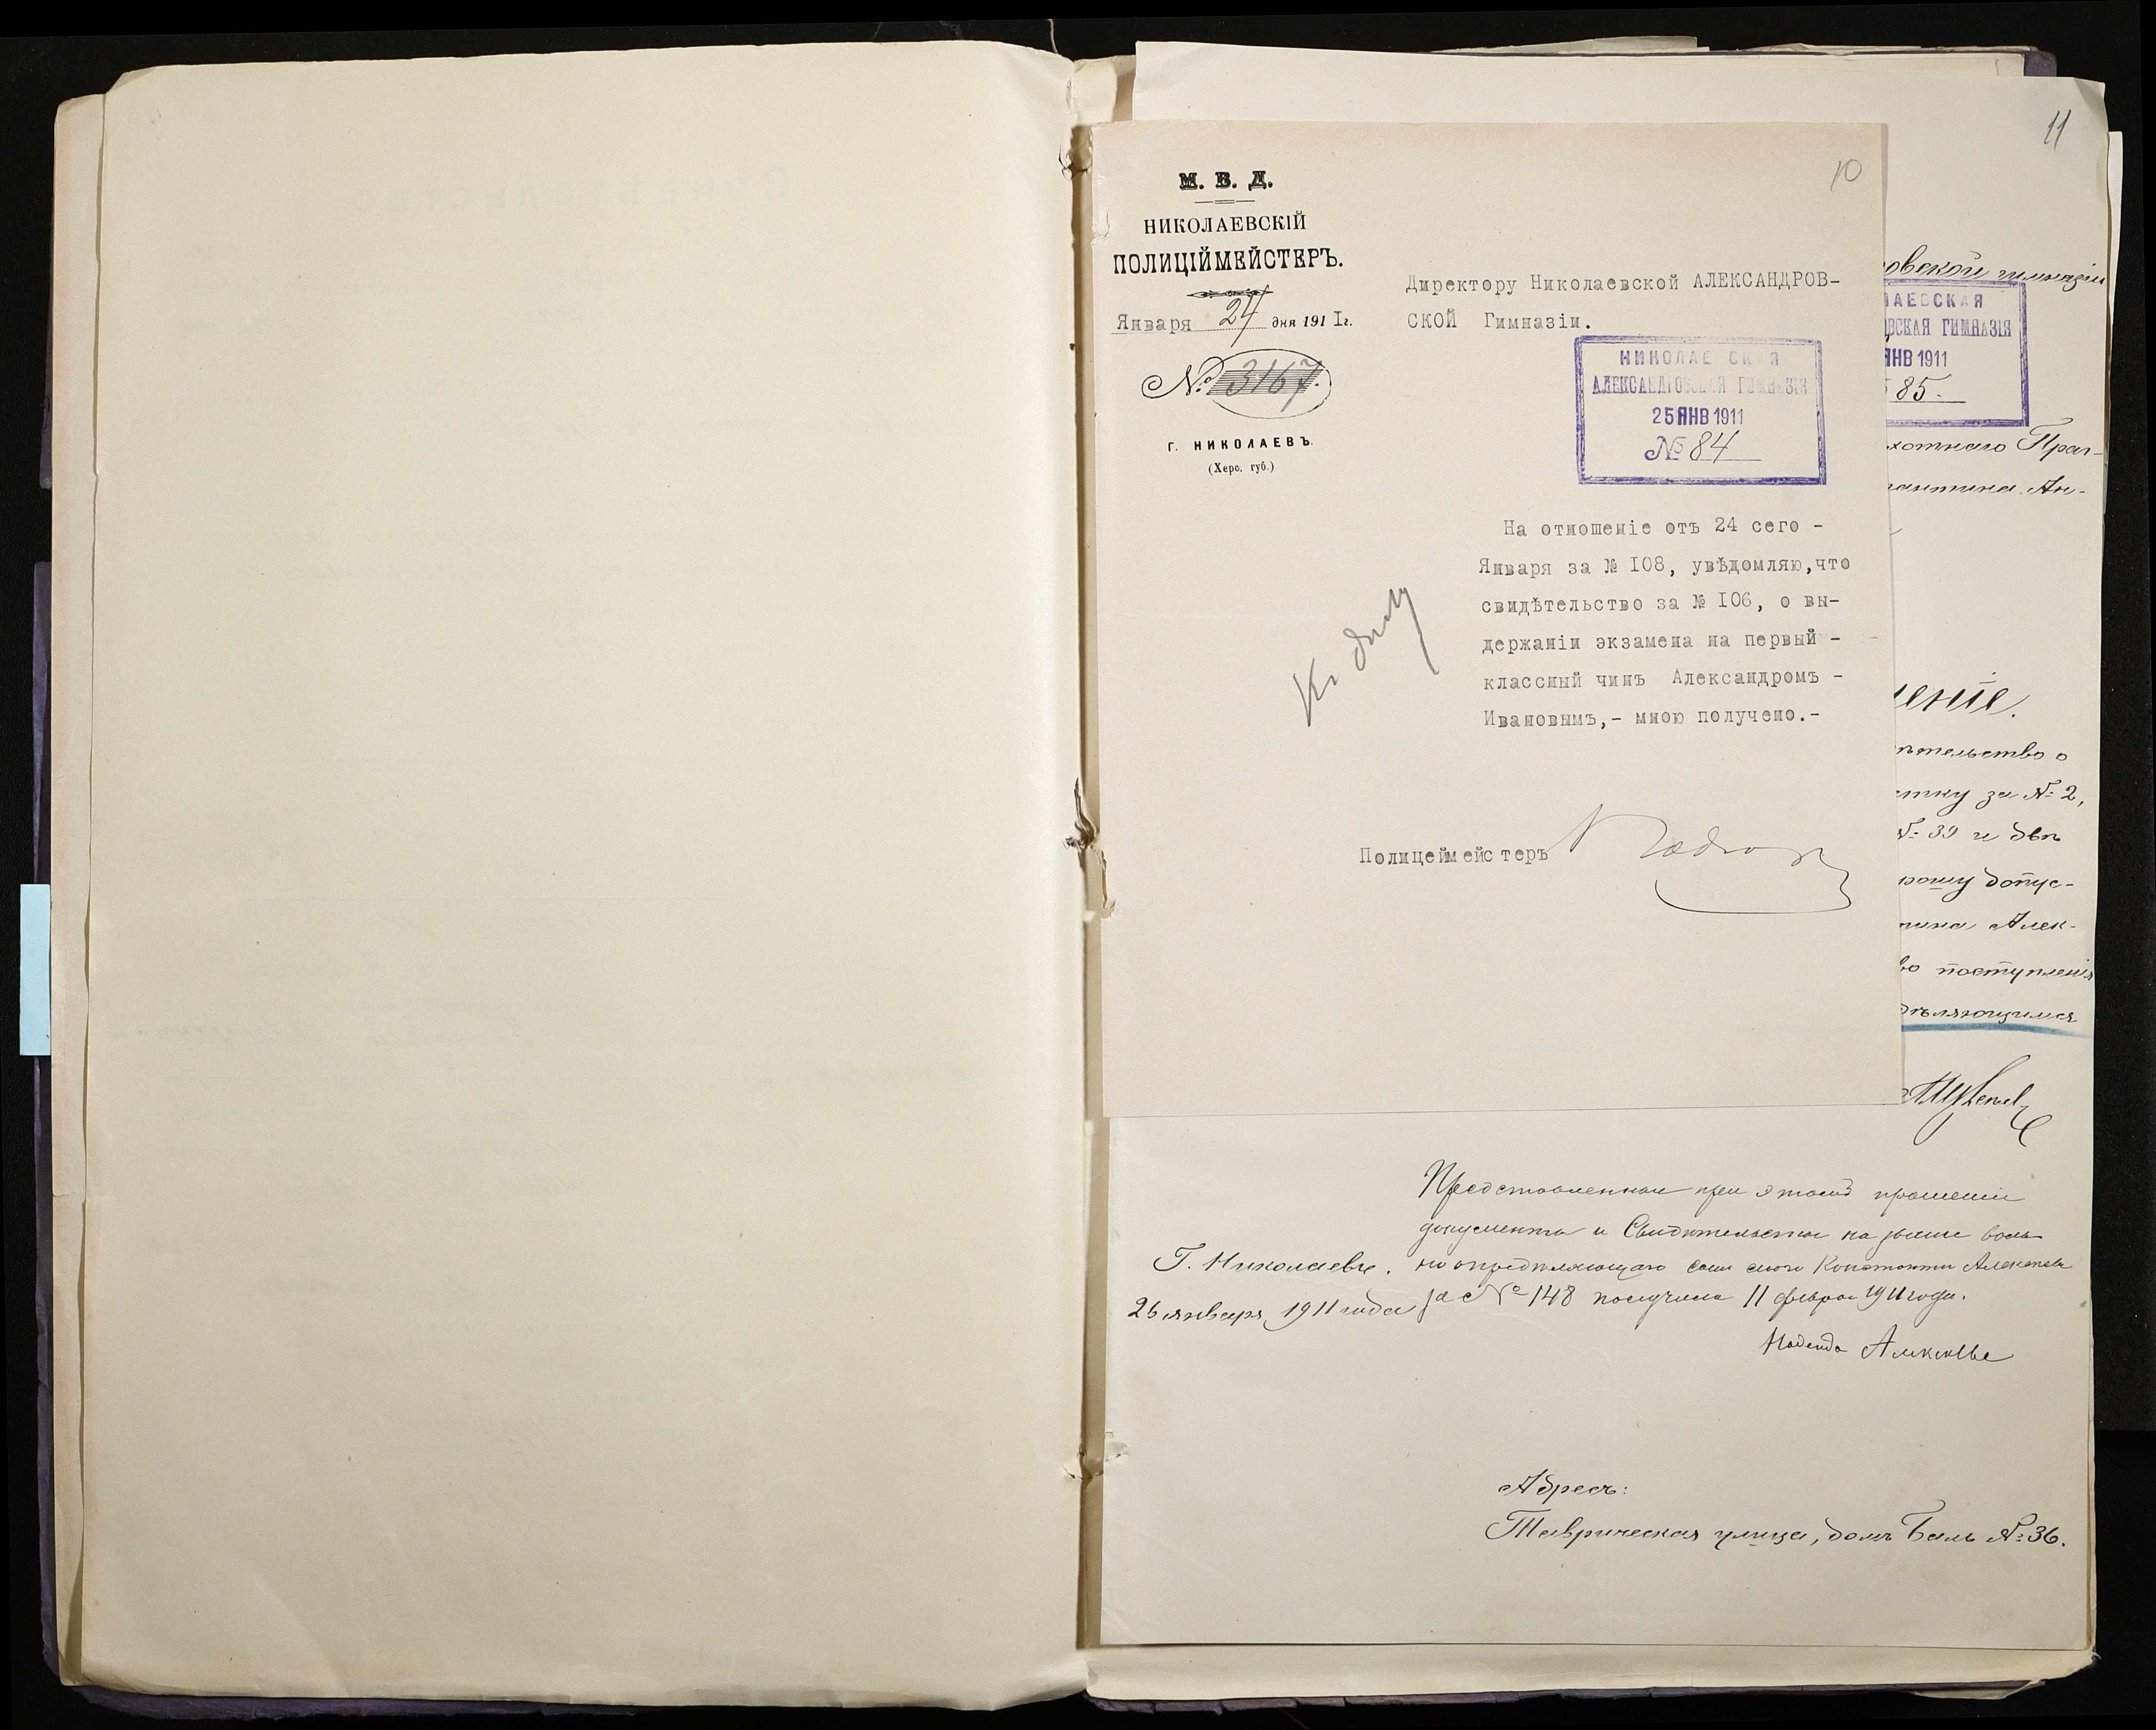 11
10
М. В. Д.
НИКОЛАЕВСКІЙ
ПОЛИЦІЙМЕЙСТЕРЪ.
Января 24 дня 191 I г.
№ 3167.
Г. НИКОЛАЕВЪ.
(Херс. губ.)
Директору Николаевской АЛЕКСАНДРОВ-
СКОЙ Гимназіи.
НИКОЛАЕ СК Я
АЛЕКСАНДРОВСКАЯ ГИМНАЗІЯ
25 ЯНВ 1911
№ 84
На отношеніе отъ 24 сего -
Января за № I08, увѣдомляю,что
свидѣтельство за № I06, о вы-
держаніи экзамена на первый -
классный чинъ Александромъ -
Ивановымъ,- мною получено.-
Къ дѣлу
Полицеймейстеръ
овской гимназіи
ЛАЕВСКАЯ
ВСКАЯ ГИМНАЗІЯ
ЯНВ 1911
85.
хотнаго Праг-
тантина Ан-
ленiе.
ѣтельство о
стку за № 2,
№ 39 и двѣ
рошу допус-
тина Алек-
во поступленія
дѣляющимся
Представленные при этомъ прошеніи
документы и Свидѣтельство на званіе воль
Г. Николаевъ.
ноопредѣляющаго сына моего Константи Алексеева
26 января 1911 года
за № 148 получила 11 февра 1911 года.
Надежда Алексеева
Адресъ:
Таврическая улица, домъ Баль № 36.